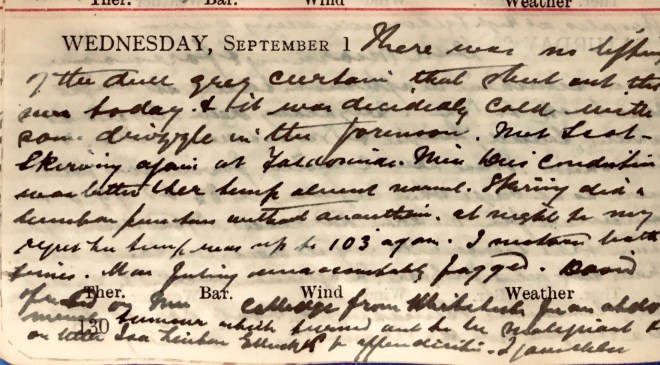 Ther. Bar. Wind Weather
WEDNESDAY, SEPTEMBER 1 There was no lifting
of the dull grey curtain that shut out the
sun today & it was decidedly cold with
some in the forenoon. Met Scot-
Skirving again at Miss condition
was better her temp almost normal. Skirving did a
lumbar puncture without anaesthesia. at night to my
regret her temp was up to 103 again. I motored both
times. Am feeling unaccountably fagged. David
Ther. Bar. Wind Weather
operated on Mrs from for an abdo
130
minal tumour which turned out to be malignant &
on little to appendicitis.